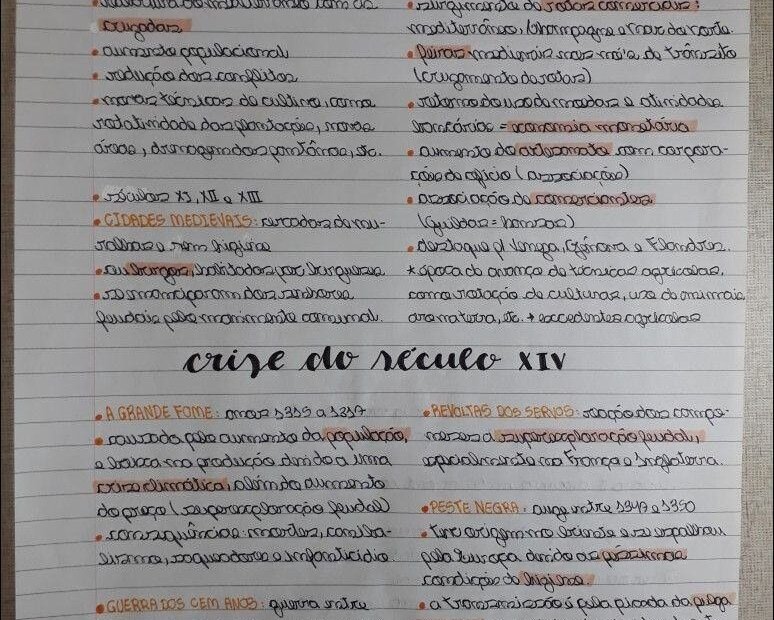 cruzadas
• aumento populacional
• redução dos conflitos
• novas técnicas de cultivo, como
rotatividade das plantações, novas
áreas, drenagem dos pantânos, etc.
• séculos XI, XII e XIII
• CIDADES MEDIEVAIS: cercadas de mu-
ralhas e sem higiene
• ou burgos, habitadas por burgueses
• se emancipavam dos senhores
feudais pelo movimento comunal.
• surgimento de rotas comerciais:
mediterrâneo, champagne e mar do norte.
• feiras medievais nos nós de trânsito
(cruzamento de rotas)
• retorno do uso de moedas e atividades
bancárias = economia monetária
• aumento do artesanato com corpora-
ções de ofício (associação)
• associação de comerciantes
(Guildas = hansas)
• destaque p/ Veneza, Gênova e Flandres.
* época de avanço de técnicas agrícolas,
como rotação de culturas, uso de animais
etc. + excedentes agrícolas
crise do século XIV
• A GRANDE FOME: anos 1315 a 1317
• causada pelo aumento da população,
e baixa na produção devido a uma
crise climática, além do aumento
do preço (superexploração feudal)
• consequências: mortes, caniba-
lismo, saqueadores e infanticídio.
• GUERRA DOS CEM ANOS: guerra entre
• REVOLTAS DOS SERVOS: reação dos campo-
neses a superexploração feudal,
especialmente na França e Inglaterra.
• PESTE NEGRA: auge entre 1347 e 1350
• teve origem no oriente e se espalhou
pela Europa devido as péssimas
condições de higiene.
• a transmissão é pela picada da pulga